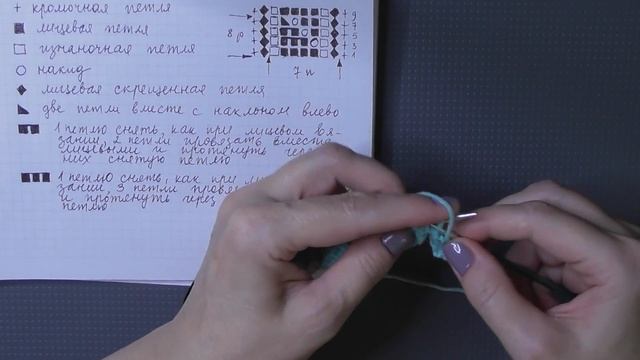 + кромочная петля
■ лицевая петля
□ изнаночная петля
○ накид
◆ лицевая скрещенная петля
◣ две петли вместе с наклоном влево
1 петлю снять, как при лицевом вя-
зании, 2 петли провязать вместе
лицевыми и протянуть через
них снятую петлю
1 петлю снять, как при
зании, 3 петли
и протянуть через
петлю
8 р
7 п
9
7
5
3
1